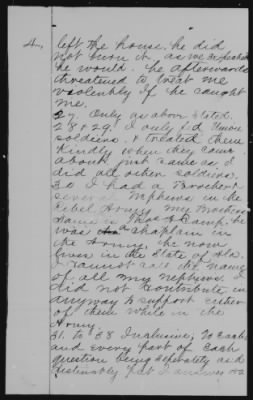 4.
left the house. he did
not burn it, as we expected
he would. he afterwards
threatened to treat me
violently if he caught
me.
27. Only as above stated.
28 & 29. I only fed Union
soldiers, & treated them
kindly when they came
about just same as I
did all other soldiers.
30 I had a Brother &
several Nephews in the
Rebel Army. My Brothers
name is he
was a chaplain in
the Army. he now
lives in the State of Ala.
I cannot call the names
of all my nephews. I
did not contribute in
anyway to support either
of them while in the
Army.
31. to 38 Inclusive; To each
and every part of each
question being separately and
distinctly put I answer no